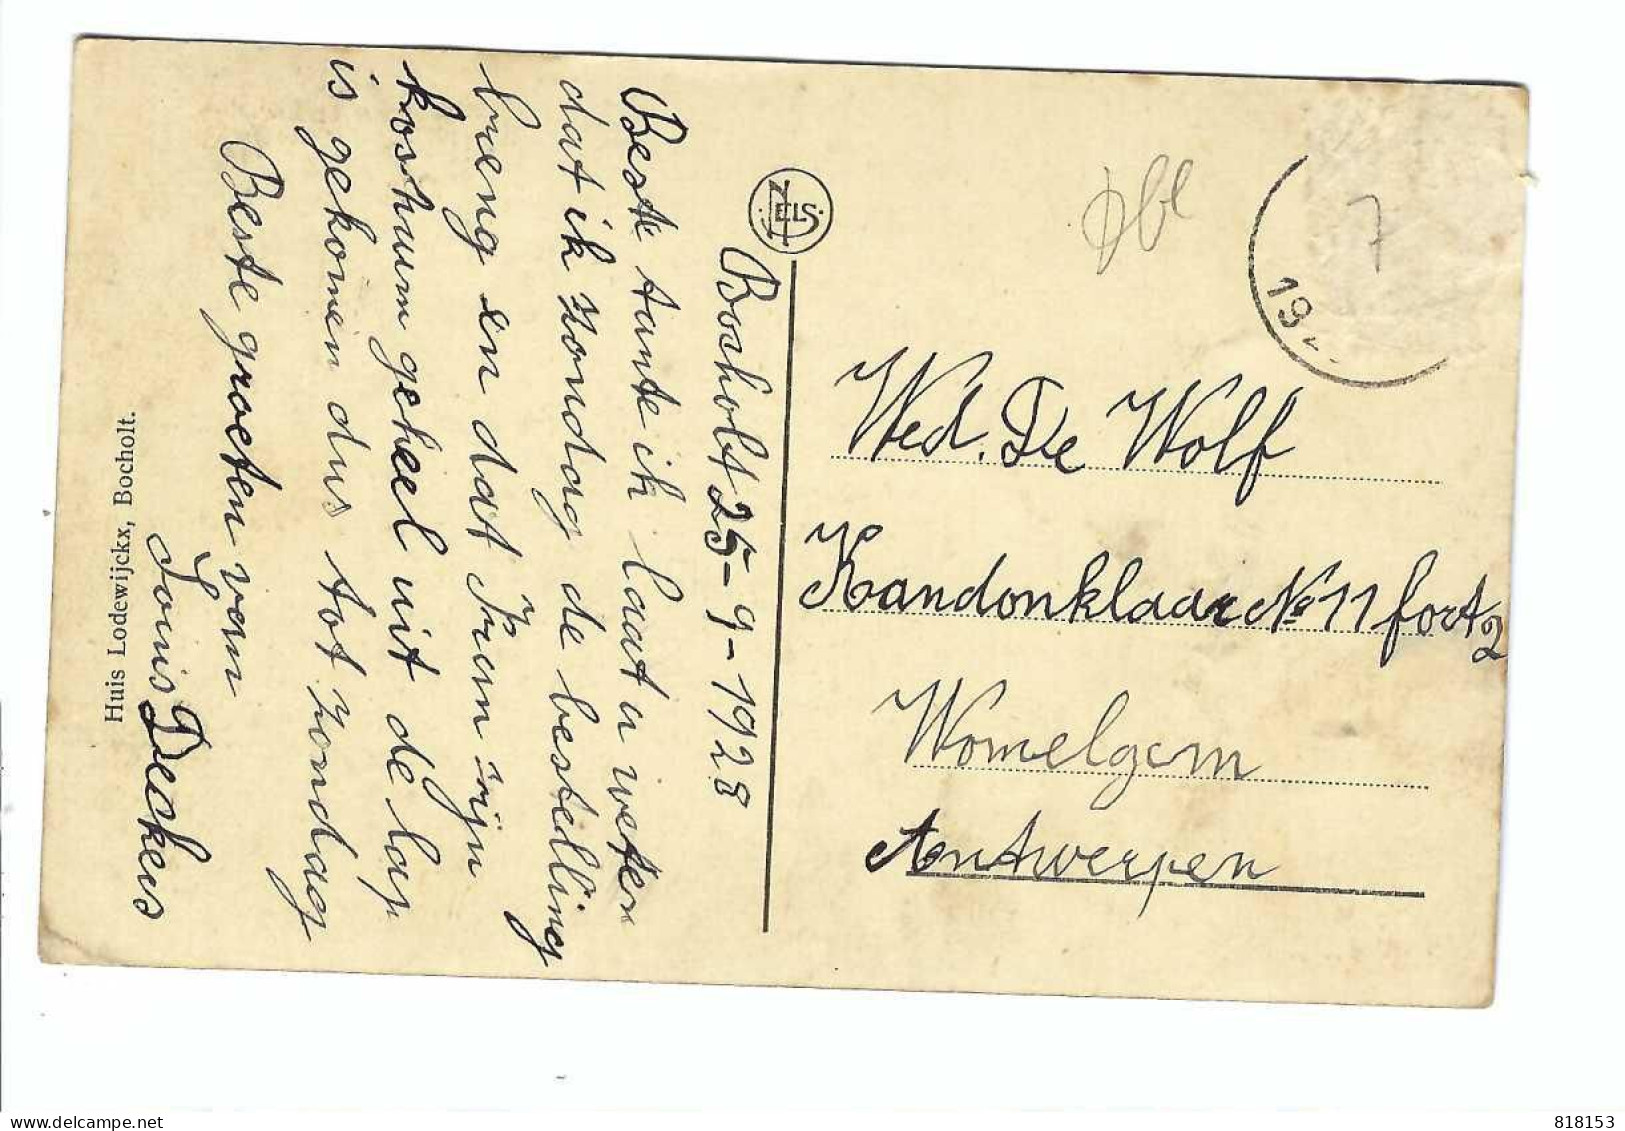 Bosholt 25-9-1928
Beste tante ik laat u weten
dat ik zondag de bestelling
breng en dat Irem zijn
kosthuum geheel uit de lap
is gekomen dus tot zondag
Beste groeten van
Louis Deckers
Huis Lodewijckx, Bocholt.
NELS
7
19
Wed. De Wolf
Kandonklaar No 11 fort 2
Womelgem
Antwerpen
delcampe.net
818153